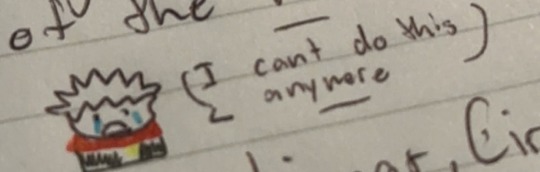 of the
(I can't do this)
anymore